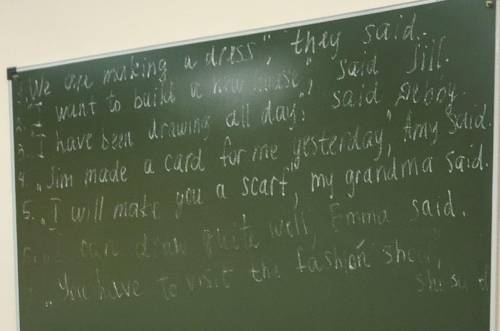 1. We are making a dress", they said.
2. I want to build a new house", said Jill.
3. I have been drawing all day". said Debby.
4. "Jim made a card for me yesterday", Amy said.
5. "I will make you a scarf", my grandma said.
can draw quite well, Emma said.
"You have to visit the fashion show,
she said